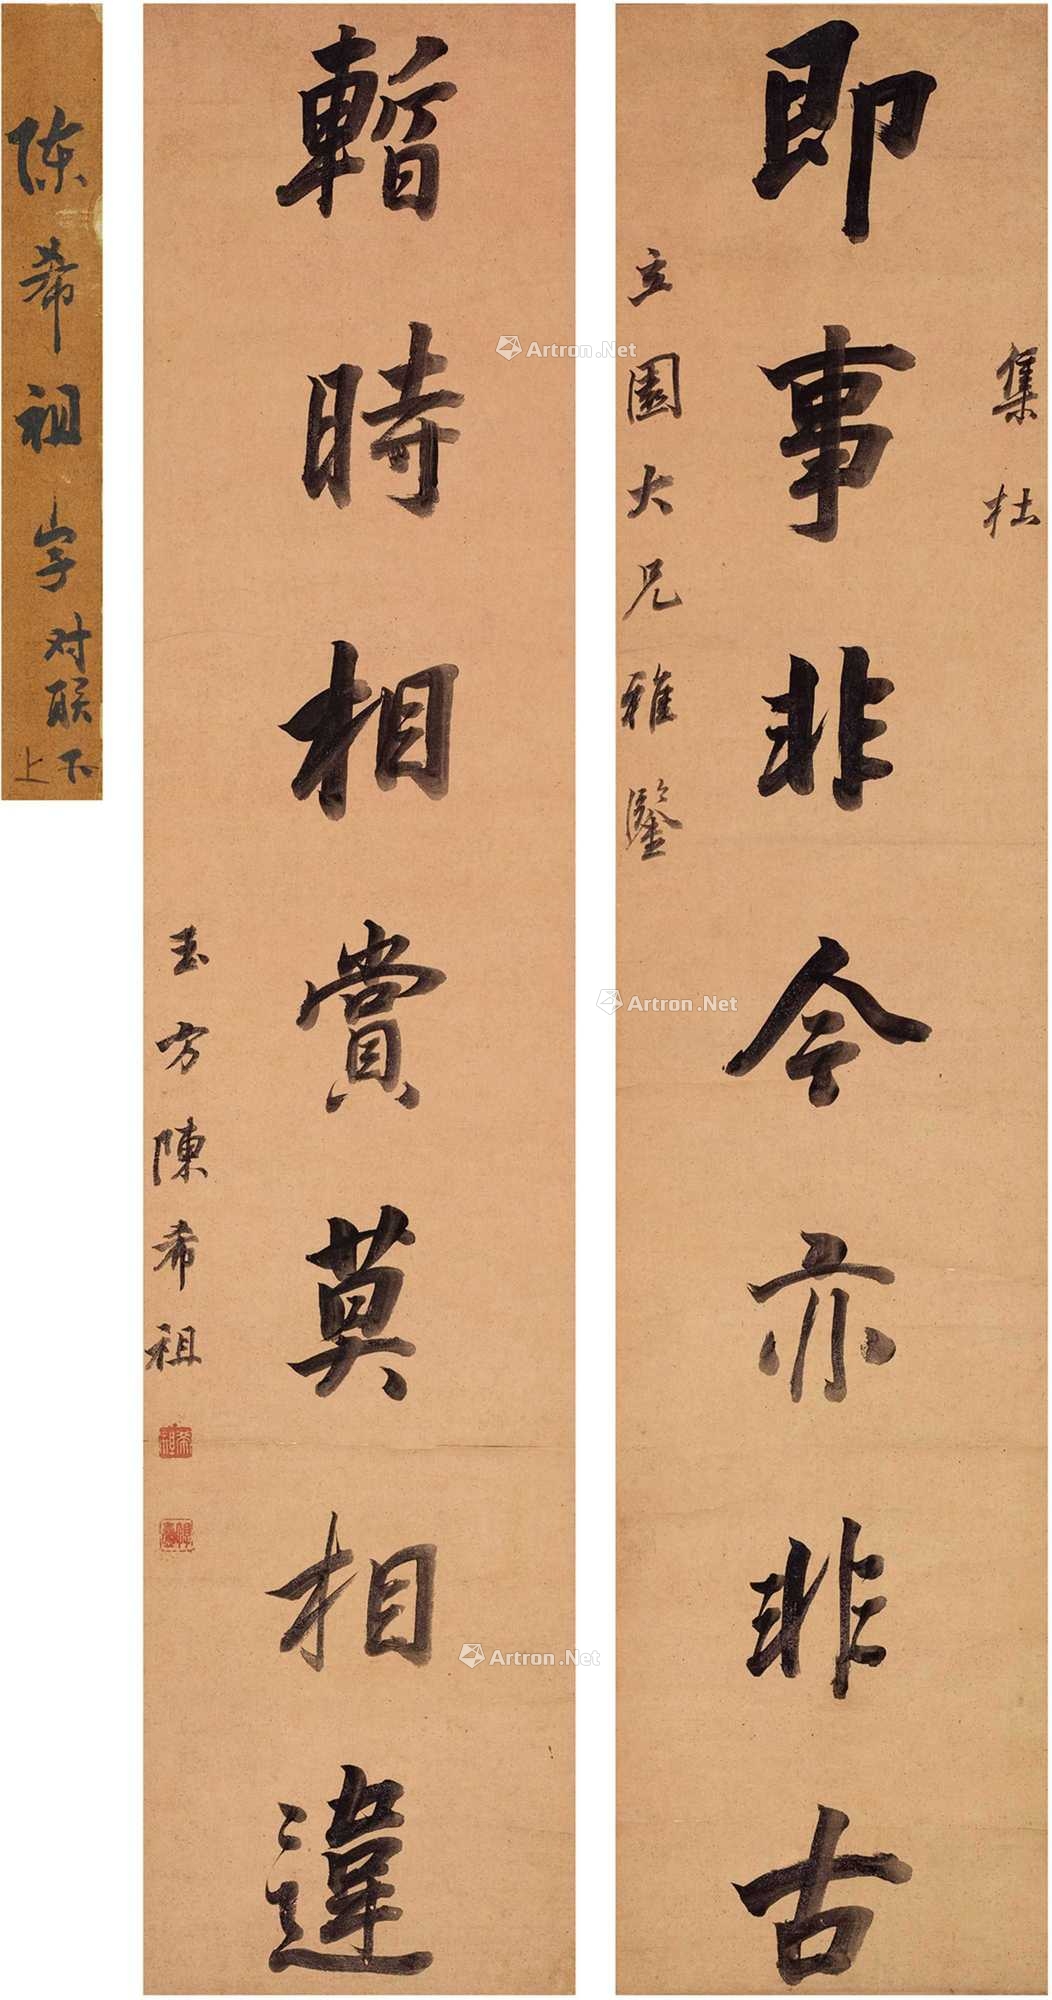 集杜
即事非今亦非古
立園大兄雅鑒
暫時相賞莫相違
玉方陳希祖
希祖
陈希祖字对联
上下
Artron.Net
Artron.Net
Artron.Net